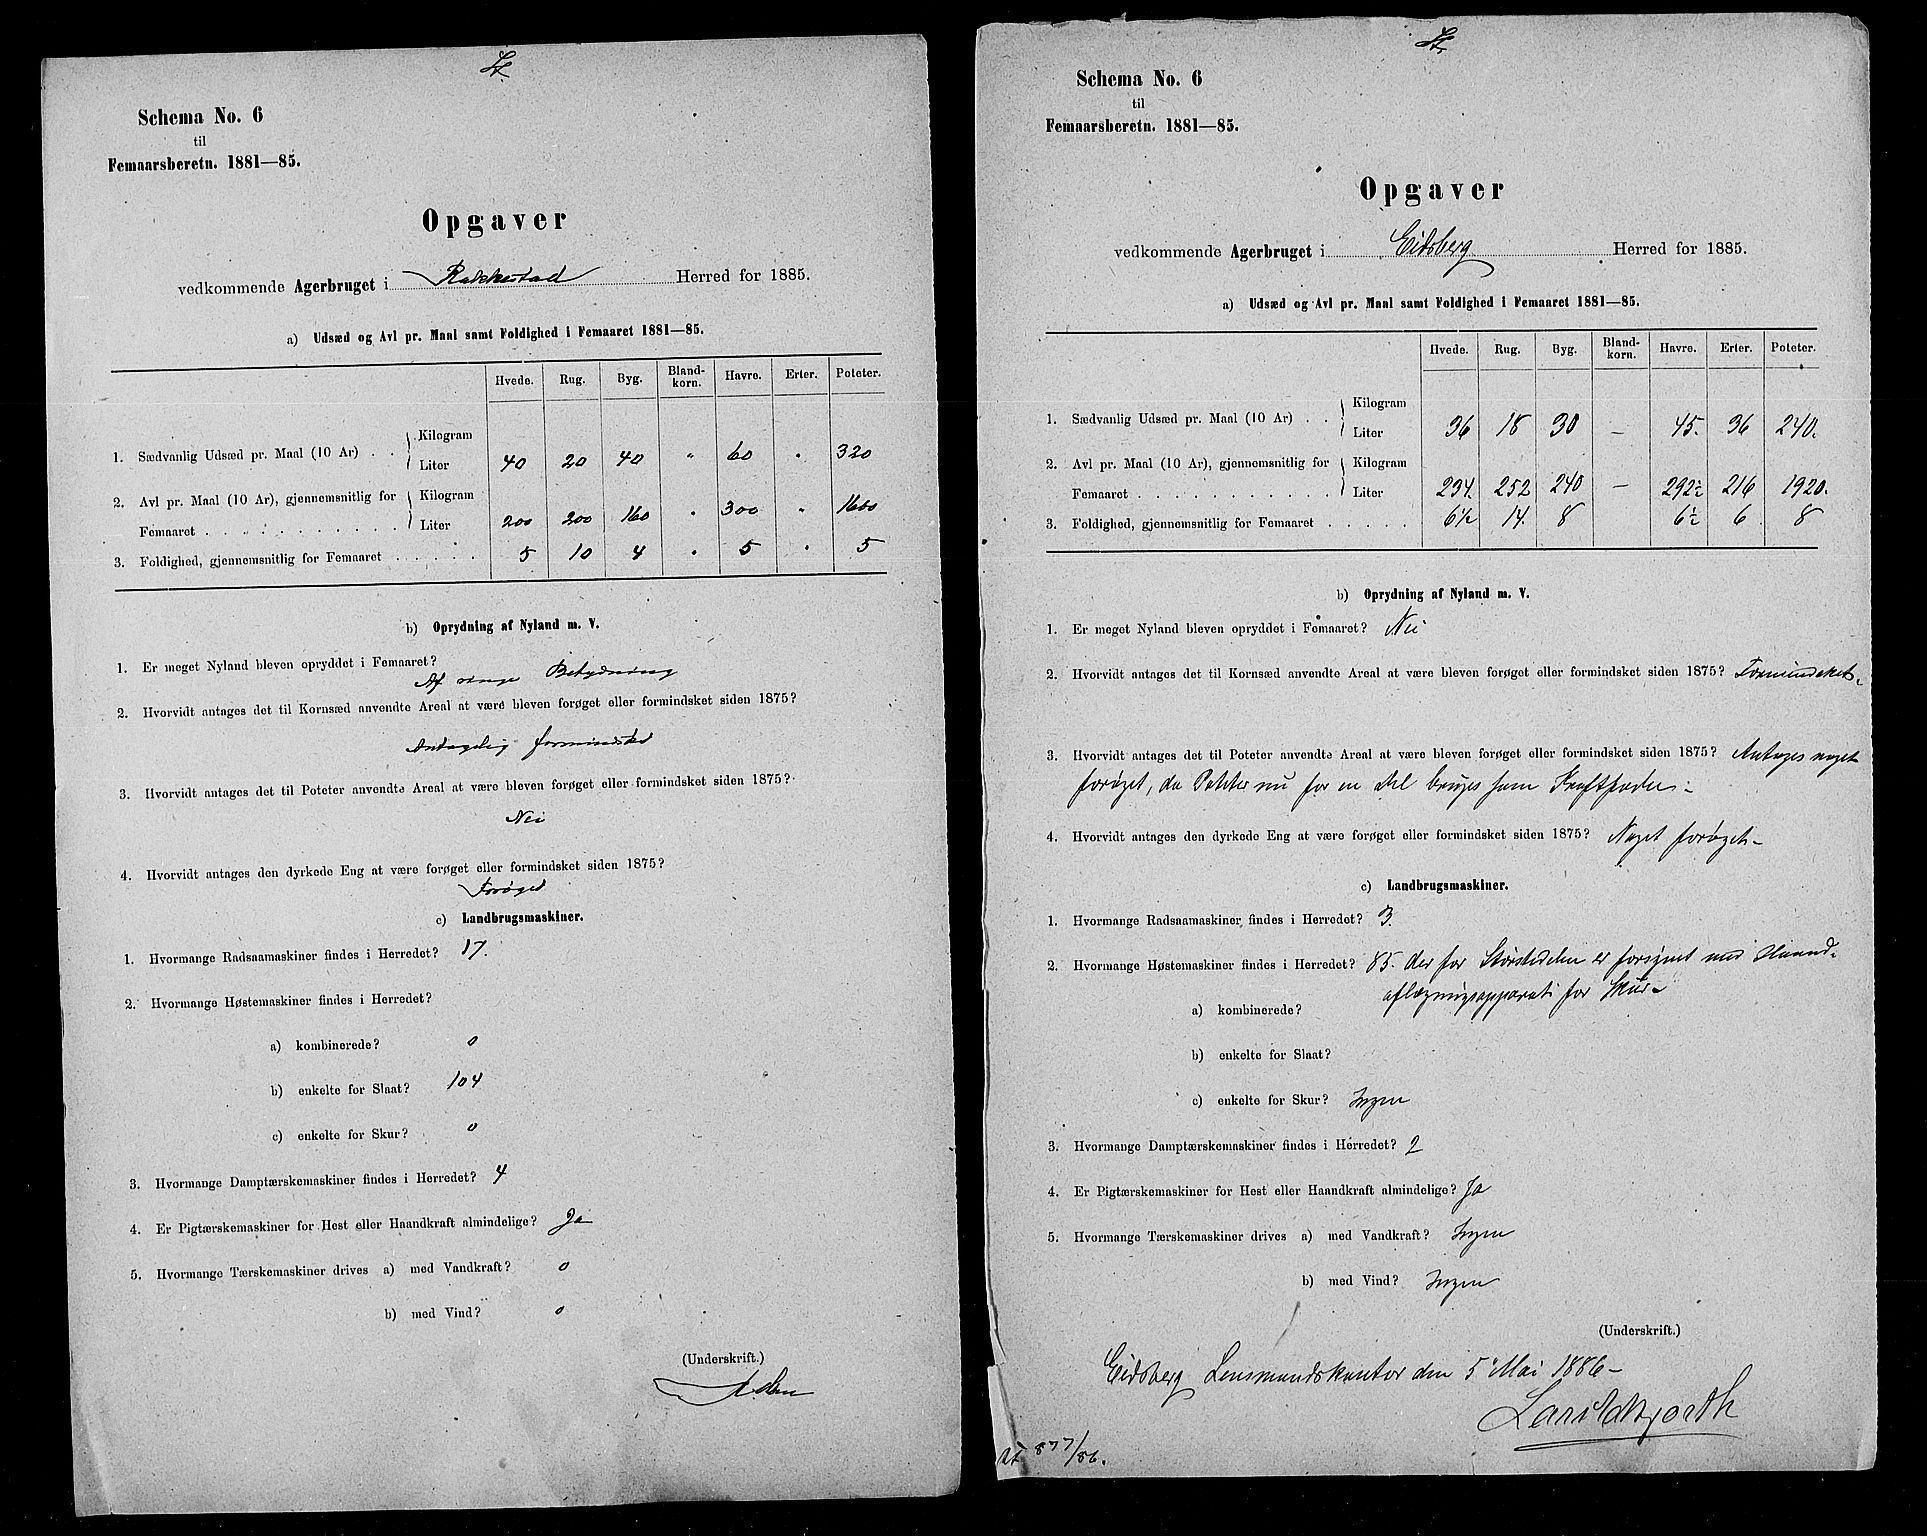 St.
Schema No. 6
til
Femaarsberetn. 1881—85.
Opgaver
vedkommende Agerbruget i Rakkestad Herred for 1885.
a) Udsæd og Avl pr. Maal samt Foldighed i Femaaret 1881—85.
Hvede. Rug. Byg. Bland-korn. Havre. Erter. Poteter.
1. Sædvanlig Udsæd pr. Maal (10 Ar) . . Kilogram
Liter 40 20 40 " 60 " 320
2. Avl pr. Maal (10 Ar), gjennemsnitlig for Kilogram
Femaaret . . . . . . . . Liter 200 200 160 " 300 " 1600
3. Foldighed, gjennemsnitlig for Femaaret . . . . . 5 10 4 " 5 " 5
b) Oprydning af Nyland m. V.
1. Er meget Nyland bleven opryddet i Femaaret?
Af ringe Betydning
2. Hvorvidt antages det til Kornsæd anvendte Areal at være bleven forøget eller formindsket siden 1875?
Antagelig formindsket
3. Hvorvidt antages det til Poteter anvendte Areal at være bleven forøget eller formindsket siden 1875?
Nei
4. Hvorvidt antages den dyrkede Eng at være forøget eller formindsket siden 1875?
Forøget
c) Landbrugsmaskiner.
1. Hvormange Radsaamaskiner findes i Herredet? 17.
2. Hvormange Høstemaskiner findes i Herredet?
a) kombinerede? 0
b) enkelte for Slaat? 104
c) enkelte for Skur? 0
3. Hvormange Damptærskemaskiner findes i Herredet? 4
4. Er Pigtærskemaskiner for Hest eller Haandkraft almindelige? Ja
5. Hvormange Tærskemaskiner drives a) med Vandkraft? 0
b) med Vind? 0
(Underskrift.)
St.
Schema No. 6
til
Femaarsberetn. 1881—85.
Opgaver
vedkommende Agerbruget i Eidsberg Herred for 1885.
a) Udsæd og Avl pr. Maal samt Foldighed i Femaaret 1881—85.
Hvede. Rug. Byg. Bland-korn. Havre. Erter. Poteter.
1. Sædvanlig Udsæd pr. Maal (10 Ar) . . Kilogram
Liter 36 18 30 — 45. 36 240.
2. Avl pr. Maal (10 Ar), gjennemsnitlig for Kilogram
Femaaret . . . . . . . . . . . Liter 234. 252 240 — 292½ 216 1920.
3. Foldighed, gjennemsnitlig for Femaaret . . . . . 6½ 14. 8 6½ 6 8
b) Oprydning af Nyland m. V.
1. Er meget Nyland bleven opryddet i Femaaret? Nei
2. Hvorvidt antages det til Kornsæd anvendte Areal at være bleven forøget eller formindsket siden 1875? Formindsket.
3. Hvorvidt antages det til Poteter anvendte Areal at være bleven forøget eller formindsket siden 1875? Antages noget
forøget, da Poteter nu for en Del bruges som Kraftfoder.
4. Hvorvidt antages den dyrkede Eng at være forøget eller formindsket siden 1875? Noget forøget.
c) Landbrugsmaskiner.
1. Hvormange Radsaamaskiner findes i Herredet? 3.
2. Hvormange Høstemaskiner findes i Herredet? 85. der for Størstedelen er forsynet med Haand-
aflægningsapparat for Skur.
a) kombinerede?
b) enkelte for Slaat?
c) enkelte for Skur? Ingen
3. Hvormange Damptærskemaskiner findes i Herredet? 2
4. Er Pigtærskemaskiner for Hest eller Haandkraft almindelige? Ja
5. Hvormange Tærskemaskiner drives a) med Vandkraft? Ingen
b) med Vind? Ingen
(Underskrift.)
Eidsberg Lensmandskontor den 5 Mai 1886
877/86.